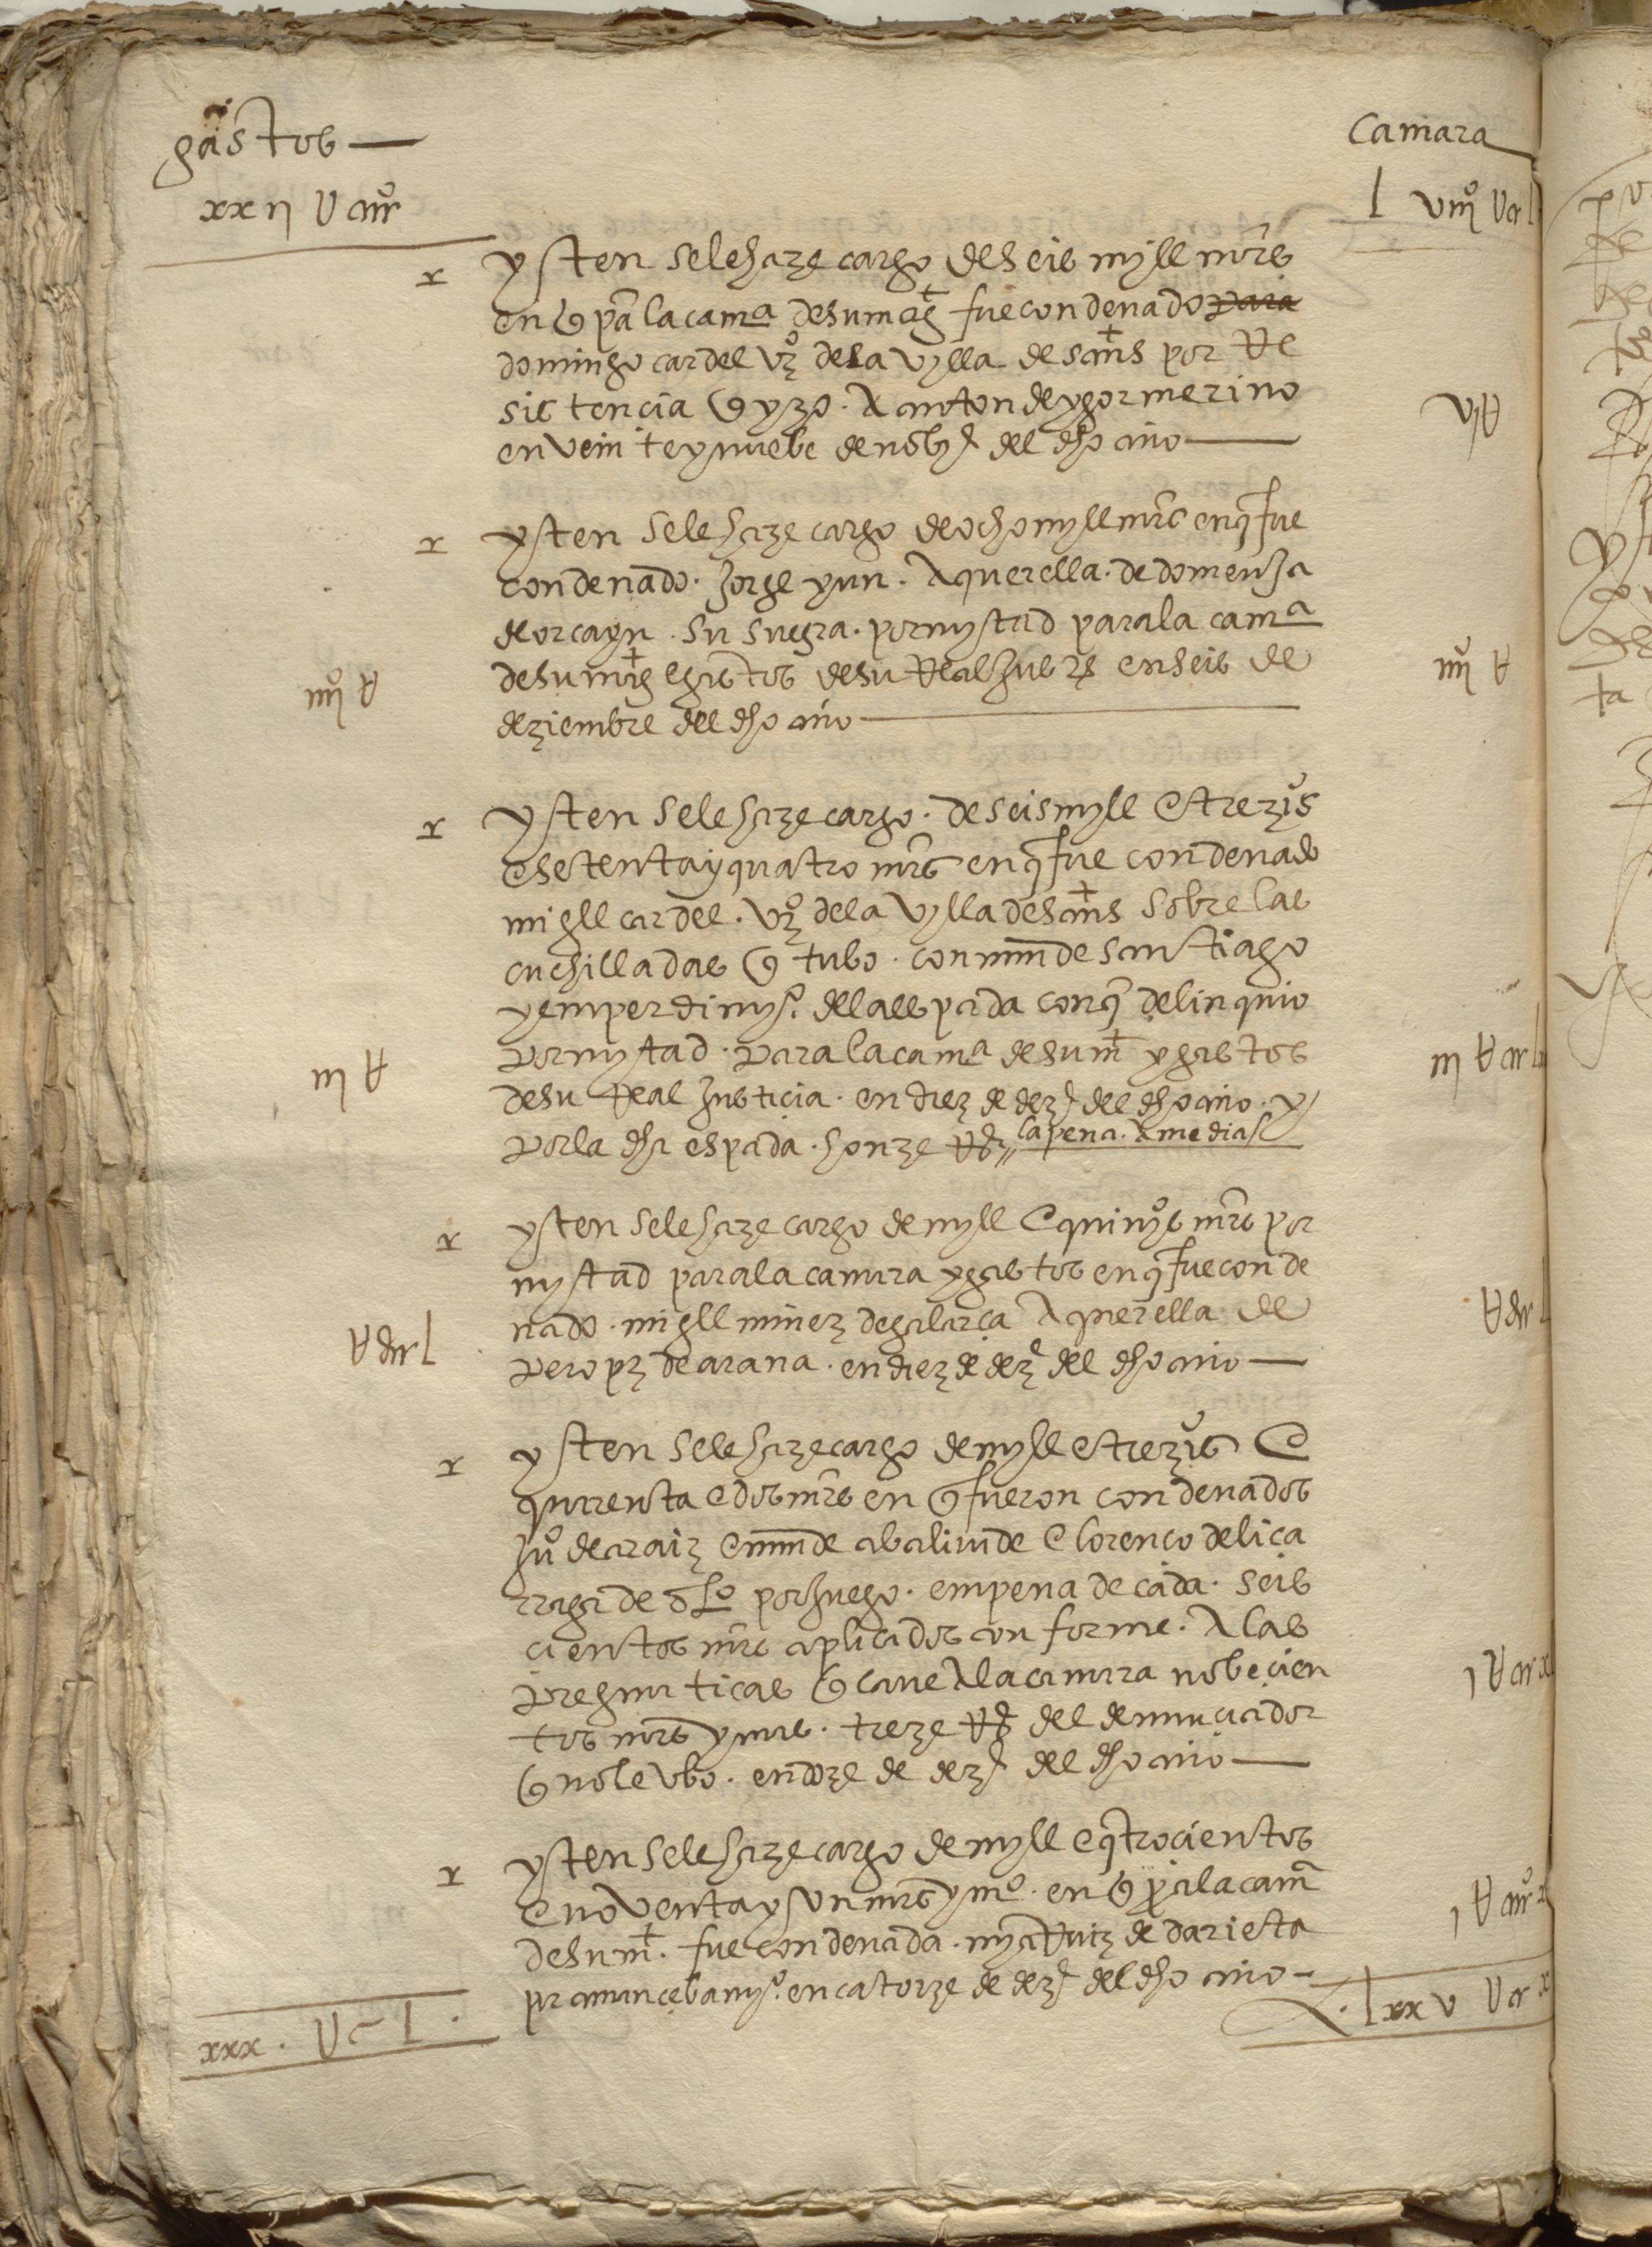 gastos
Camara
xxii U
ysten se le haze cargo de seis myll mrs
en q pa la cama de su magt fue condenado para
domingo cardel vzo de la vylla de sants por Re
sistencia q yzo. A anton de ygor merino
en veinte y nuebe de nobye del dho año
ysten se le haze cargo de ocho myll mrs en q fue
condenado. Jorge yun. A querella. de domenja
de orcayn. su suegra. por mytad para la cama
de su magt e gastos de su Real
en seis de
deziembre del dho año
iiijo U
iiijo U
ysten se le haze cargo. de seis myll e trezios
e setenta y quatro mrs en q fue condenado
migll cardel. vzo de la vylla de sants sobre las
cuchilladas q tubo. con min de santiago
y en perdimyo. de la espada con q delinquio
por mytad. para la cama de su mt y gastos
de su Real Justicia. en diez de deze del dho año. y
por la dha espada. honze Rs la pena. A medias
iii U
ysten se le haze cargo de myll e quinyos mrs por
mytad para la camara y gastos en q fue conde
nado. migll minez de galarça A querella de
pero pz de arana. en diez de deze del dho año
ysten se le haze cargo de myll e trezios e
quarenta e dos mrs en q fueron condenados
juo de araiz e min de abalinde e lorenço de liça
rraga de
por juego. en pena de cada. seis
cientos mrs aplicados conforme. A las
pregmaticas q cave A la camara nobecien
tos mrs y mas. treze Rs del denunciador
q no le ubo. en doze de deze del dho año
ysten se le haze cargo de myll e qtrocientos
e noventa y un mrs y mo. en q para la cama
de su mt. fue condenada. mya Ruiz de darieta
por amancebamyo. en catorze de deze del dho año
xxx. U c l.